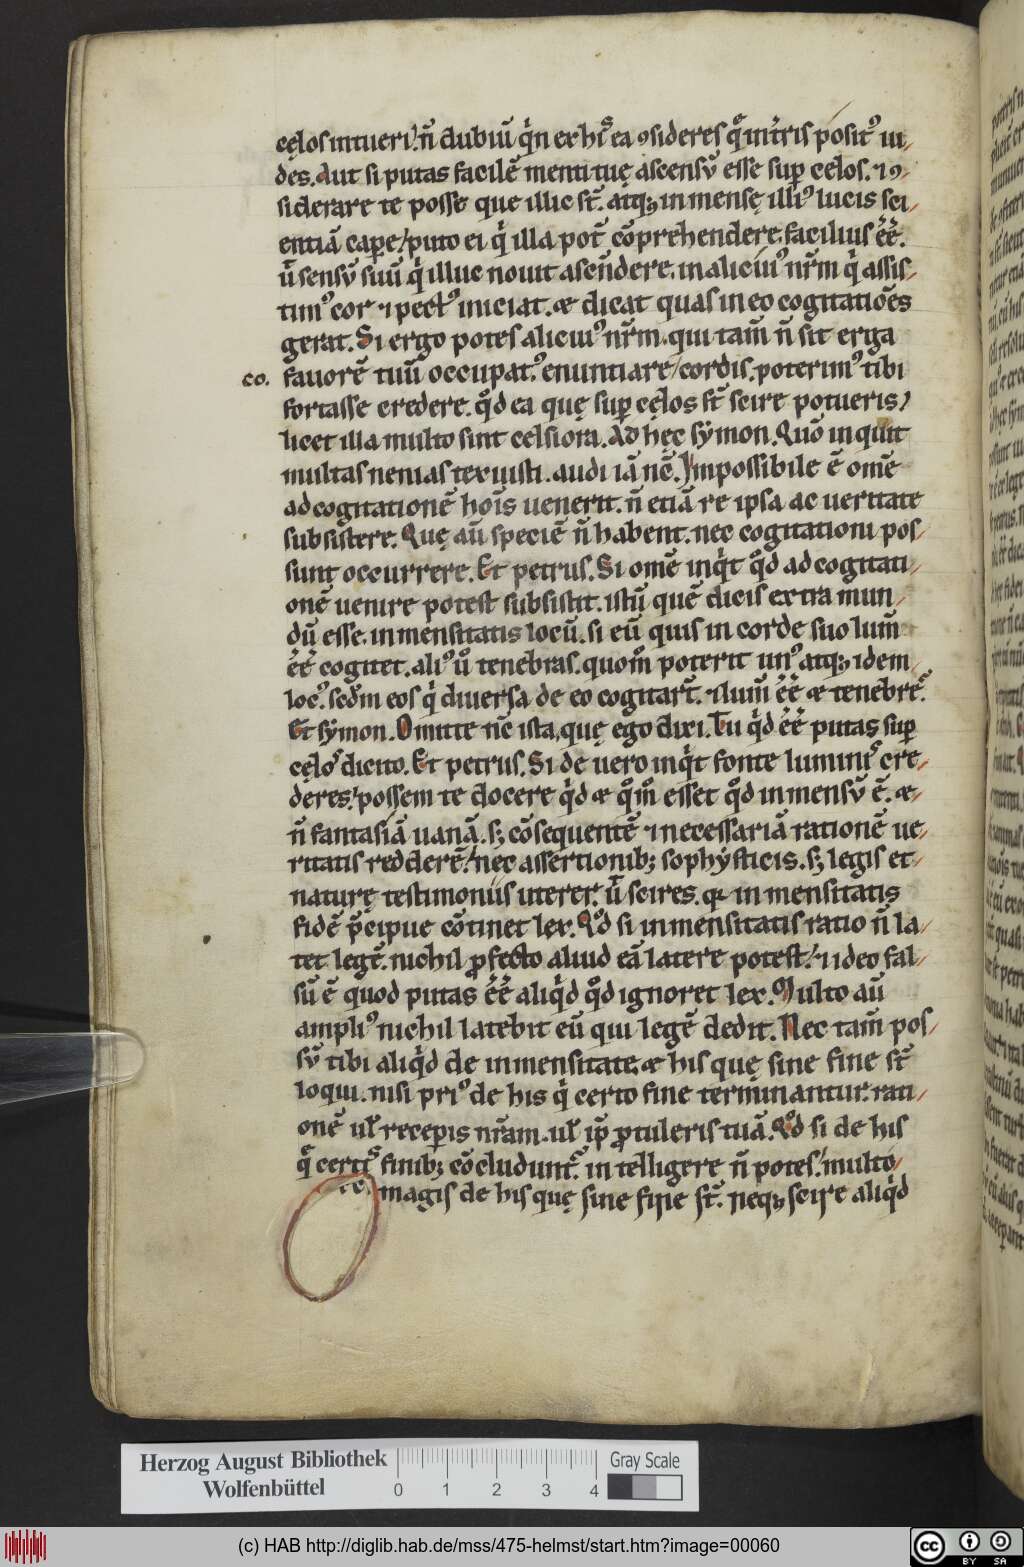 cęlos intueri. n̄ dubiū q̇n ex hiſ̄ ea ꝯsideres q̄ intͥris posit᷒ ui-
des. Aut si putas facilē menti tuę ascensū esse sup̱ cęlos. ⁊ ꝯ-
siderare te posse que illic st̄. atq; inmensę illi᷒ lucis sci-
entiā cap̱e / puto ei q̇ illa pot̄ cōprehendere. facilius ēē.
ū sensū suū q̇ illuc nouit ascendere. in alicui᷒ nr̄m q̇ assis-
tim᷒ cor ⁊ pect᷒ iniciat. æ dicat quas in eo cogitatiōes
gerat. Si ergo potes alicui᷒ nr̄m. qui tam̄ n̄ sit erga
co. fauorē tuū occupat᷒ enuntiare / cordis. poterim᷒ tibi
fortasse credere. qd̄ ea quę sup̱ cęlos st̄ scire potueris /
licet illa multo sint celsiora. Ad hęc sẏmon. Quō inquit
multas nenias texuisti. audi iā nc̄. Impossibile ē omē
ad cogitationē hoīs uenerit. n̄ etiā re ipsa ac ueritate
subsistere. Quę aū speciē n̄ habent. nec cogitationi pos-
sunt occurrere. Et petrus. Si omē inq̇t qd̄ ad cogitati-
onē uenire potest subsistit. istū quē dicis extra mun-
dū esse. inmensitatis locū. si eū quis in corde suo lum̄
ēē cogitet. ali᷒ ū tenebras. quom̄ poterit un᷒ atq; idem
loc᷒. sedm̄ eos q̇ diuersa de eo cogitart̄. ⁊ lum̄ ēē æ tenebrę.
Et sẏmon. Omitte nc̄ ista, quę ego dixi. Tu q̇d ēē putas sup̱
cęlos dicito. Et petrus. Si de uero inq̇t fonte luminis cre-
deres / possem te docere q̇d æ qm̄ esset qd̄ inmensū ē. æ-
n̄ fantasiā uanā. s; cōsequentē ⁊ necessariā rationē ue-
ritatis redderē / nec assertionib; sophẏsticis. s; legis et-
naturę testimoniis uterer. ū scires. qɜ inmensitatis
fidē p̄cipue cōtinet lex. Qd̄ si inmensitatis ratio n̄ la-
tet legē. nichil ꝓfecto aliud eā latere potest / ⁊ ideo fal-
sū ē quod putas ēē aliq̇d qd̄ ignoret lex. Multo aū
ampli᷒ nichil latebit eū qui legē dedit. Nec tam̄ pos-
sū tibi aliq̇d de inmensitate æ his quę sine fine st̄
loqui. nisi pri᷒ de his q̇ certo fine terminantur. rati-
onē ul̄ recep̱is nr̄am. ul̄ ip̄ ꝓtuleris tuā. Qd̄ si de his
q̄ certis finib; cōcluduntͬ intelligere n̄ potes / multo
magis de his quę sine fine st̄. neq; scire aliq̇d
Herzog August Bibliothek
Wolfenbüttel
0 1 2 3 4
Gray Scale
(c) HAB http://diglib.hab.de/mss/475-helmst/start.htm?image=00060
cc BY SA